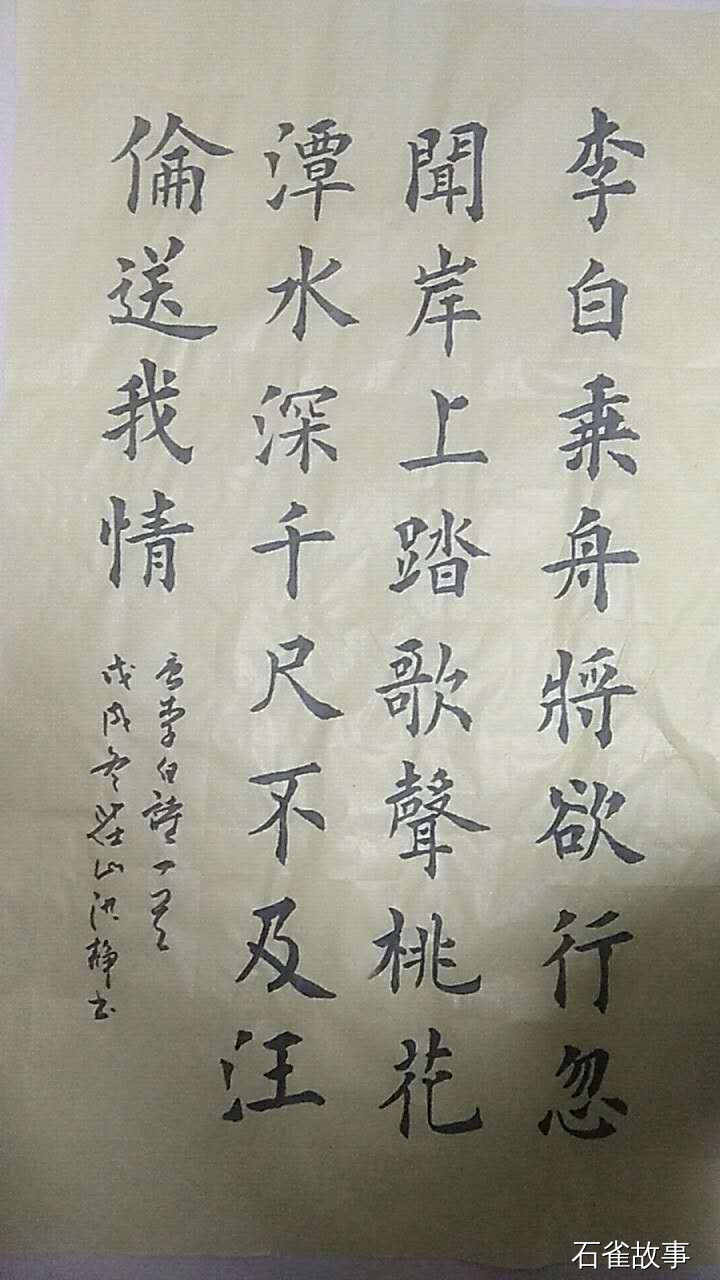 李白乗舟將欲行忽
聞岸上踏歌聲桃花
潭水深千尺不及汪
倫送我情
唐李白詩一首
戊戌冬 山洪 书
石雀故事